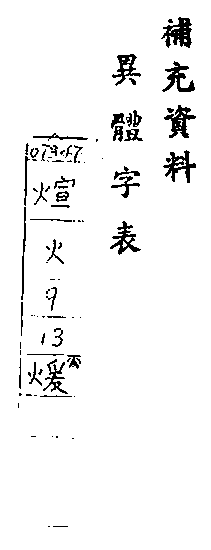 補充資料
異體字表
煊
火
9
13
煖